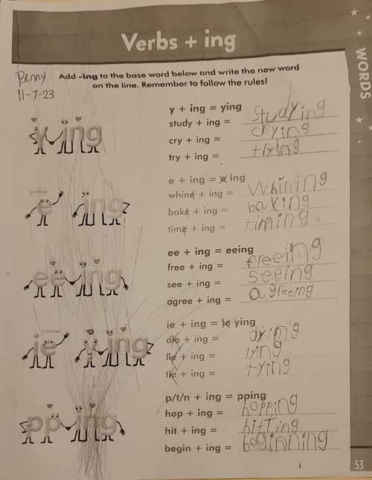 Verbs + ing
WORDS
Benny
11-7-23
Add -ing to the base word below and write the new word
on the line. Remember to follow the rules!
ying
y + ing = ying
study + ing = studying
cry + ing = crying
try + ing = trying
e ing
e + ing = eing
whine + ing = whining
bake + ing = baking
time + ing = timing.
ee ing
ee + ing = eeing
free + ing = freeing
see + ing = seeing
agree + ing = agreeing
ie ying
ie + ing = ie ying
die + ing = dying
lie + ing = lying
tie + ing = tying
pp ing
p/t/n + ing = pping
hop + ing = hopping
hit + ing = hitting
begin + ing = beginning
53